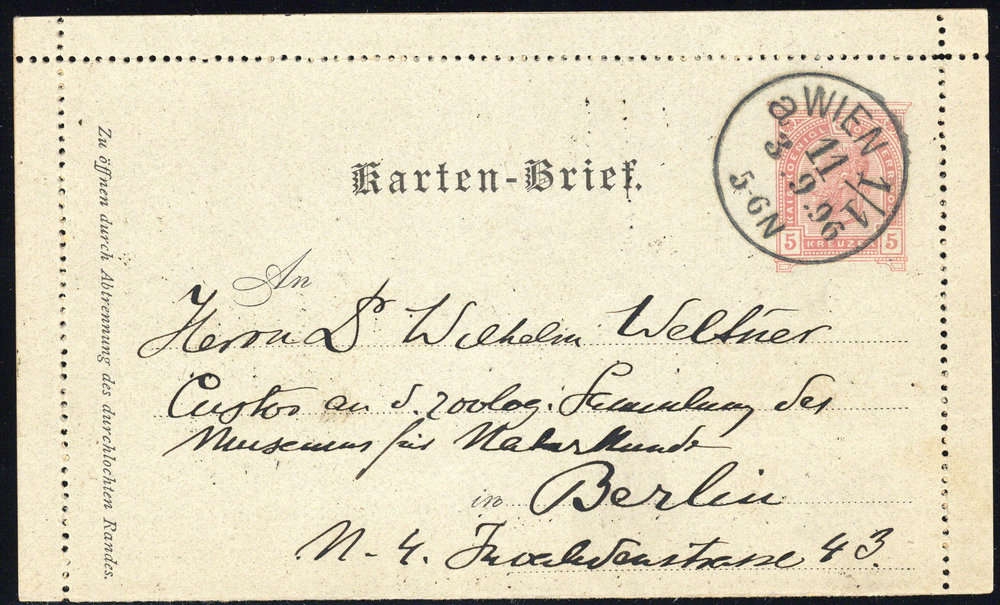 Karten-Brief.
WIEN 1/1
11 9 96
5-6N
8 3
5 KREUZER 5
Zu öffnen durch Abtrennung des durchlochten Randes.
An
Herrn Dr Wilhelm Weltner
Custos an d. zoolog. Sammlung des
Museums für Naturkunde
in Berlin
N. 4. Invalidenstrasse 43